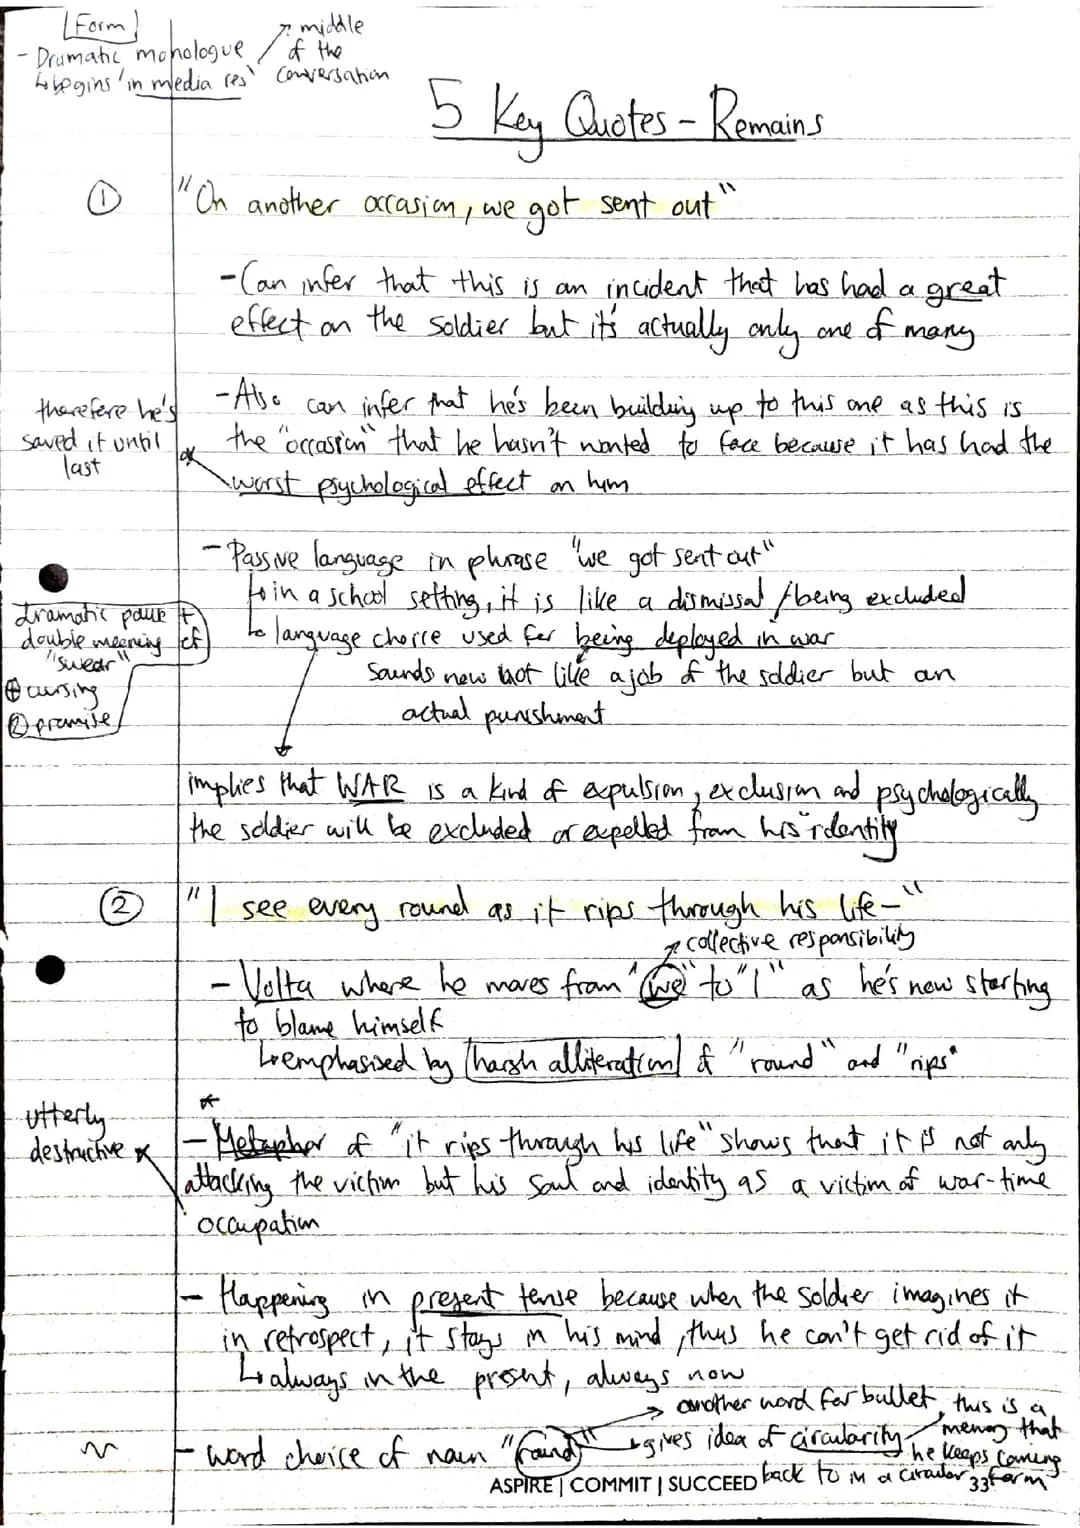 [Form]
- Dramatic monologue
↳ begins 'in media res'
↗ middle
of the
conversation
5 Key Quotes - Remains
① "On another occasion, we got sent out"
- Can infer that this is an incident that has had a great
effect on the soldier but it's actually only one of many
- Also can infer that he's been building up to this one as this is
the "occasion" that he hasn't wanted to face because it has had the
worst psychological effect on him
therefore he's
saved it until
last *
- Passive language in phrase "we got sent out"
↳ in a school setting, it is like a dismissal / being excluded
↳ language choice used for being deployed in war
sounds now not like a job of the soldier but an
actual punishment
dramatic pause +
double meaning of
"swear"
① cursing
② promise
implies that WAR is a kind of expulsion, exclusion and psychologically
the soldier will be excluded or expelled from his identity
② "I see every round as it rips through his life-"
↗ collective responsibility
- Volta where he moves from "we" to "I" as he's now starting
to blame himself
↳ emphasised by [harsh alliteration] of "round" and "rips"
*
- Metaphor of "it rips through his life" shows that it is not only
attacking the victim but his soul and identity as a victim of war-time
occupation
utterly
destructive *
- Happening in present tense because when the soldier imagines it
in retrospect, it stays in his mind, thus he can't get rid of it
↳ always in the present, always now
- word choice of noun "round"
→ another word for bullet, this is a
memory that
he keeps coming
back to in a circular form
↳ gives idea of circularity
ASPIRE | COMMIT | SUCCEED
33